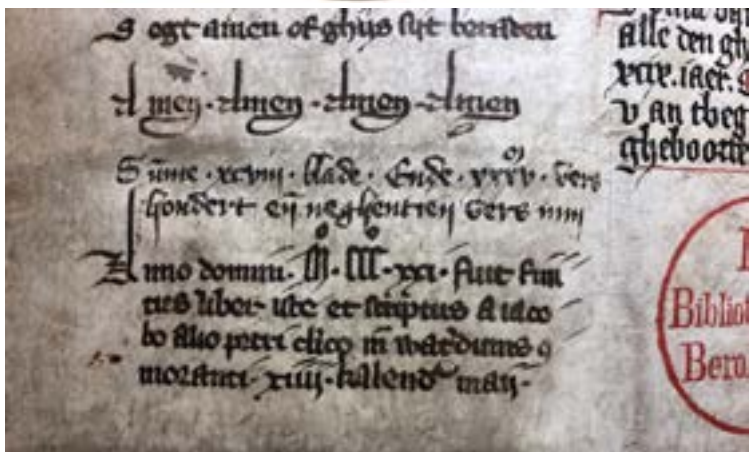 S ogt amen of ghijs sijt beraden
Amen · Amen · Amen · Amen
Sūme · xcviii · blade · Ende · xxxv · vers
hondert eñ neghentien vers min
Anno domini · M · CCC · xxi · fuit fini
tus liber iste et scriptus a iaco
bo filio petri clico
moranti · xiiii · kallend maij ·
alle den gh
xcix. iaer.
v an tbeg
gheboorte
Biblio
Bero